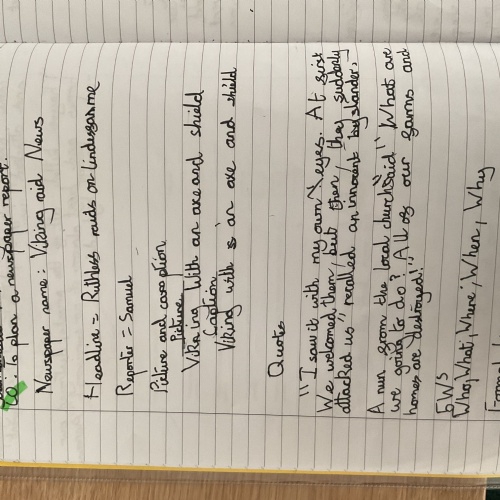 LO: to plan a newspaper report.
Newspaper name: Viking aid News
Headline = Ruthless raids on lindisfarme
Reporter = Samuel
Picture and caption
Picture
Vikning With an axe and shield
Caption
Viking with an axe and shield
Quotes
"I saw it with my own eyes. At first
We welcomed them, but then, they suddenly
attacked us" recalled an innocent
A nun from the local church said " What are
we going to do? All of our farms and
homes are destroyed!"
5Ws
Who, What, Where, When, Why